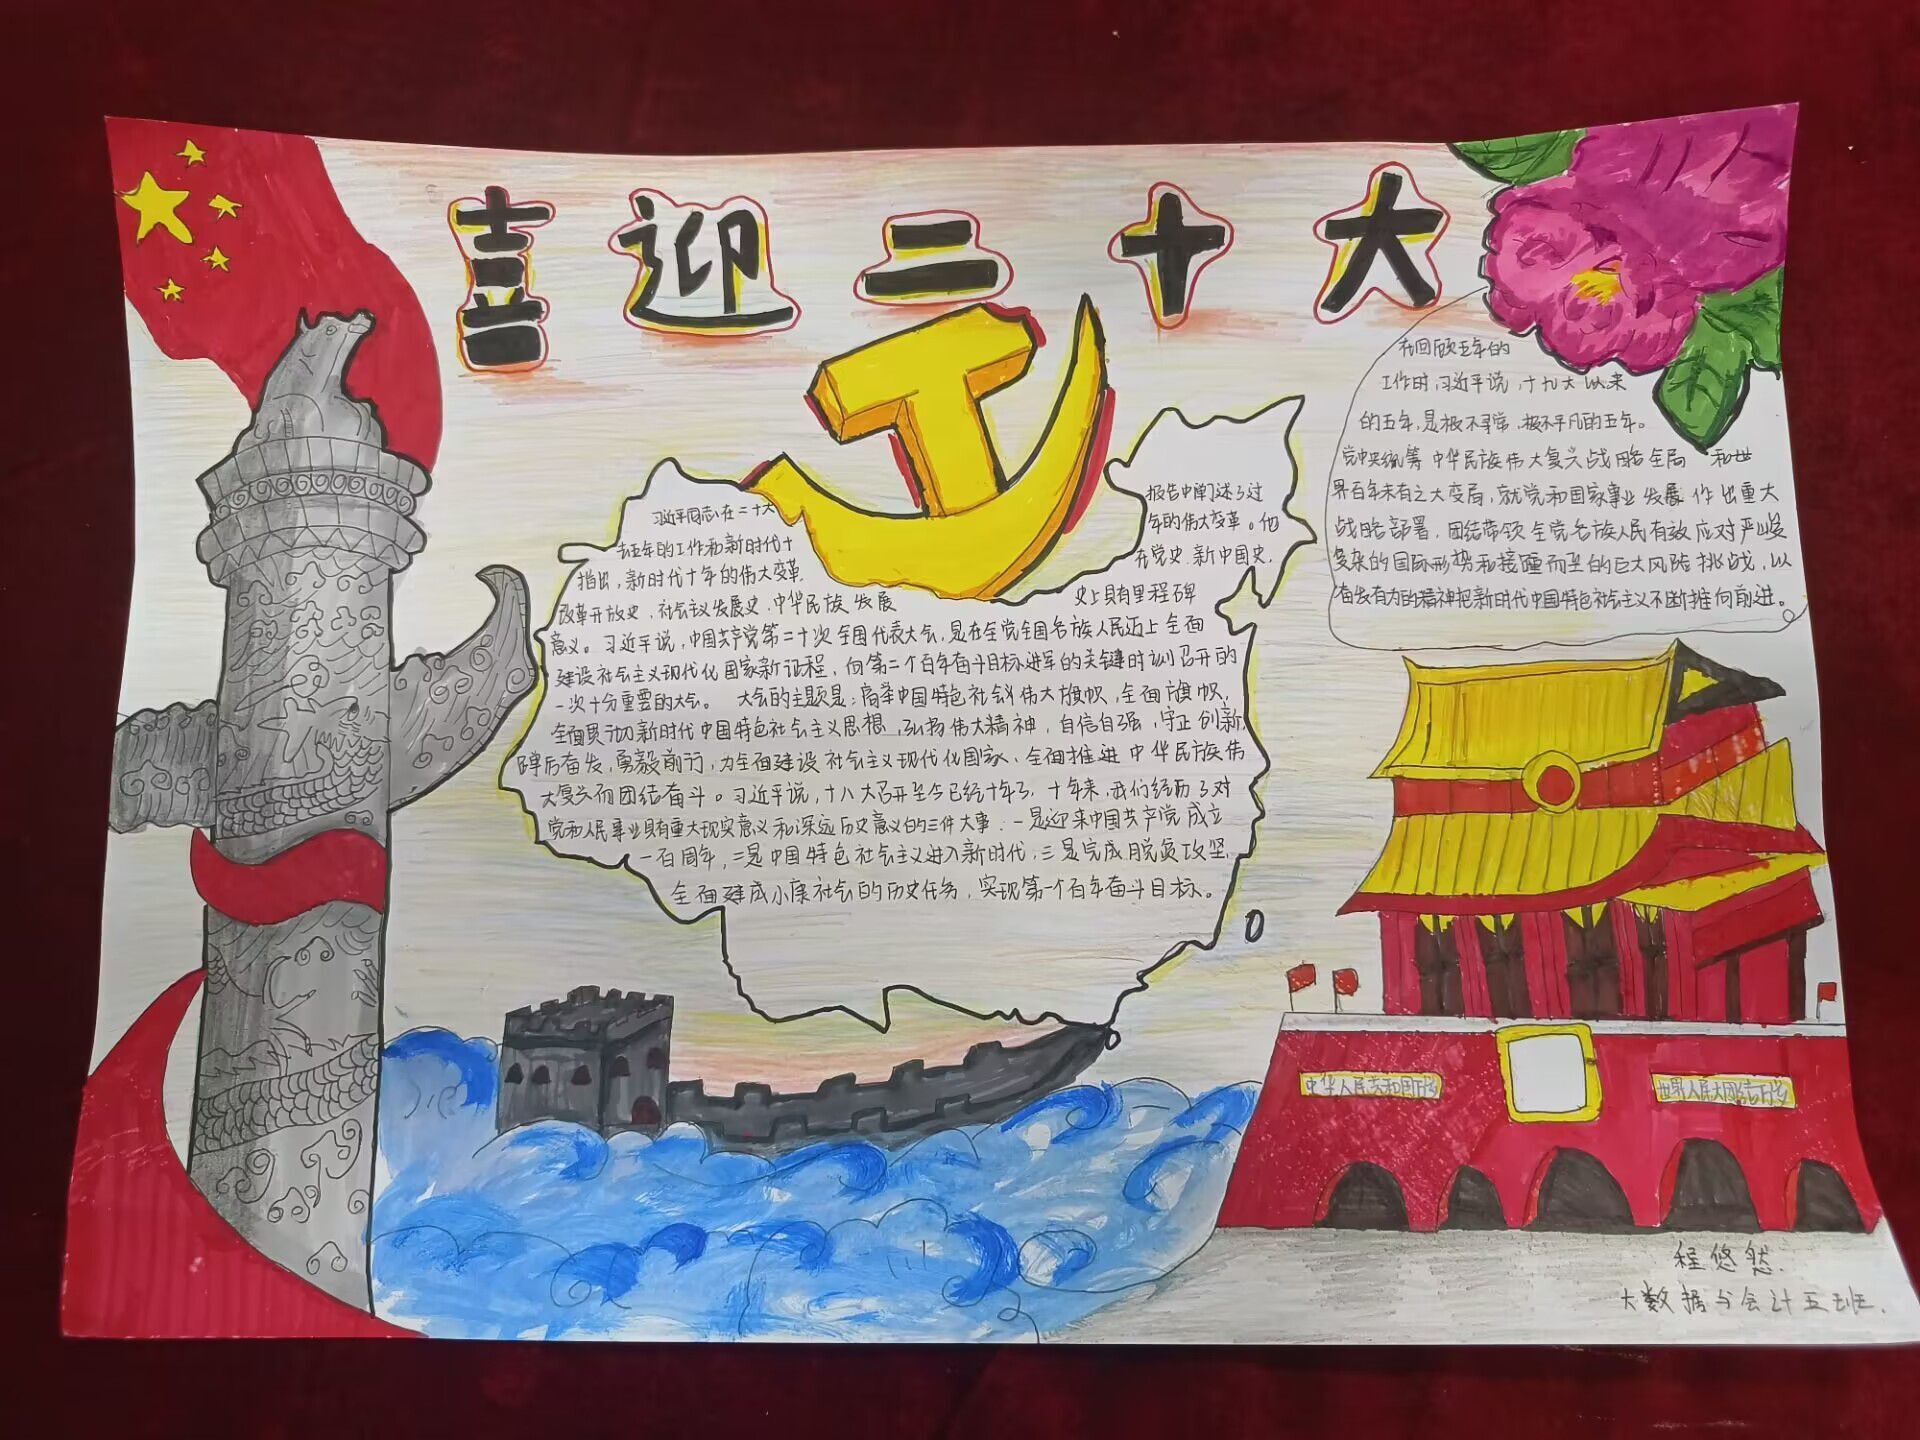 喜迎二十大
习近平同志在二十大
报告中阐述了过
去五年的工作和新时代十
年的伟大变革。他
指出,新时代十年的伟大变革,
在党史、新中国史、
改革开放史、社会主义发展史、中华民族发展
史上具有里程碑
意义。习近平说,中国共产党第二十次全国代表大会,是在全党全国各族人民迈上全面
建设社会主义现代化国家新征程,向第二个百年奋斗目标进军的关键时刻召开的
一次十分重要的大会。 大会的主题是:高举中国特色社会主义伟大旗帜,全面旗帜,
全面贯彻新时代中国特色社会主义思想,弘扬伟大精神,自信自强,守正创新,
踔厉奋发,勇毅前行,为全面建设社会主义现代化国家、全面推进中华民族伟
大复兴而团结奋斗。习近平说,十八大召开至今已经十年了,十年来,我们经历了对
党和人民事业具有重大现实意义和深远历史意义的三件大事:一是迎来中国共产党成立
一百周年,二是中国特色社会主义进入新时代,三是完成脱贫攻坚、
全面建成小康社会的历史任务,实现第一个百年奋斗目标。
在回顾五年的
工作时,习近平说,十九大以来
的五年,是极不寻常、极不平凡的五年。
党中央统筹中华民族伟大复兴战略全局 和世
界百年未有之大变局,就党和国家事业发展作出重大
战略部署,团结带领全党各族人民有效应对严峻
复杂的国际形势和接踵而至的巨大风险挑战,以
奋发有为的精神把新时代中国特色社会主义不断推向前进。
中华人民共和国万岁
世界人民大团结万岁
程悠然.
大数据与会计五班.